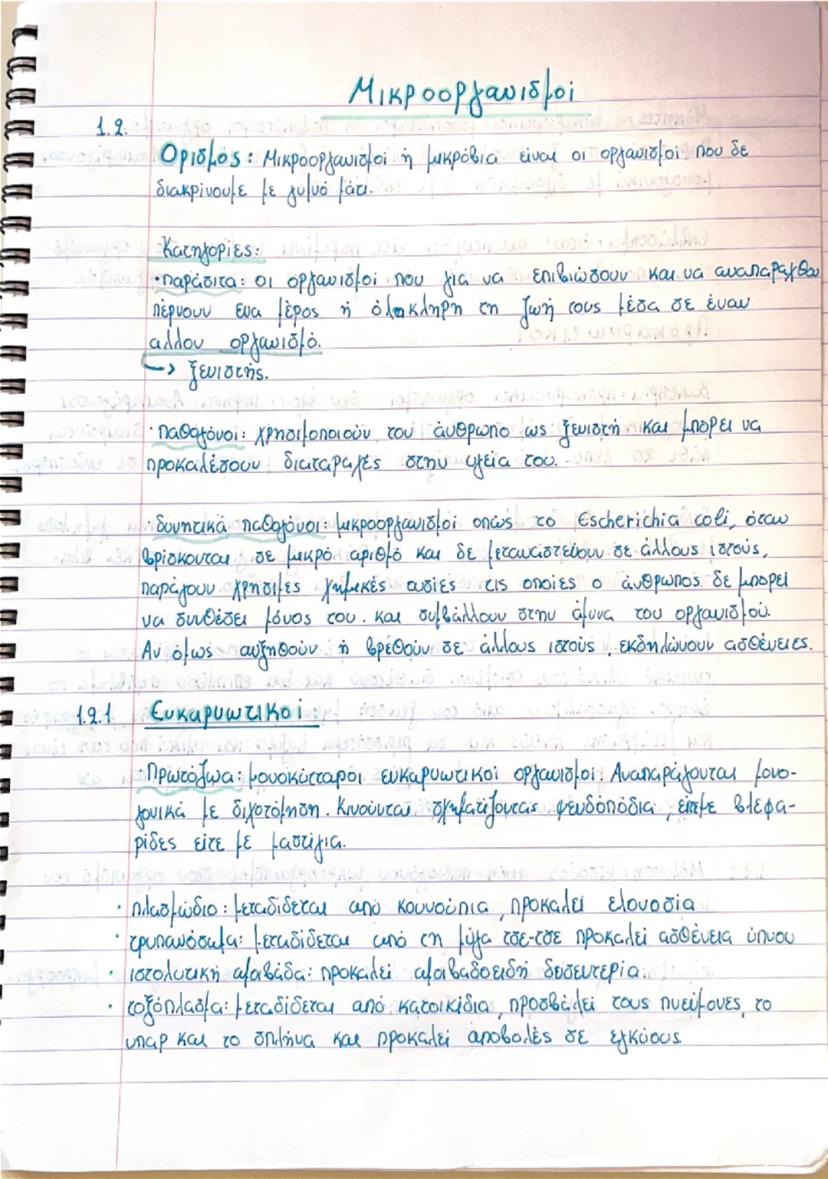 Μικροοργανισμοί
1.2.
Ορισμός: Μικροοργανισμοί ή μικρόβια είναι οι οργανισμοί που δε
διακρίνουμε με γυμνό μάτι.
Κατηγορίες:
·παράσιτα: οι οργανισμοί που για να επιβιώσουν και να αναπαραχθου
πέρνουν ενα μέρος ή ολόκληρη τη ζωή τους μέσα σε έναν
αλλον οργανισμό.
↳ ξενιστής.
·παθογόνοι: χρησιμοποιούν τον άνθρωπο ως ξενιστή και μπορεί να
προκαλέσουν διαταραχές στην υγεία του.
·δυνητικά παθογόνοι: μικροοργανισμοί οπως το Escherichia coli, όταν
βρίσκονται σε μικρό αριθμό και δε μεταναστεύουν σε άλλους ιστούς,
παράγουν χρησιμες χημικές ουσίες τις οποίες ο άνθρωπος δε μπορεί
να συνθέσει μόνος του. και συμβάλλουν στην άμυνα του οργανισμού.
Αν όμως αυξηθούν ή βρεθούν σε άλλους ιστούς, εκδηλώνουν ασθένειες.
1.2.1 Ευκαρυωτικοί:
·Πρωτόζωα: μονοκύτταροι ευκαρυωτικοί οργανισμοί. Αναπαράγονται μονο-
γονικά με διχοτόμηση. Κινούνται σχηματίζοντας ψευδοπόδια, είτε με βλεφα-
ρίδες είτε με μαστίγια.
· πλασμώδιο: μεταδίδεται από κουνούπια, προκαλεί ελονοσία
· τρυπανόσωμα: μεταδίδεται από τη μύγα τσε-τσε προκαλεί ασθένεια ύπνου
· ιστολυτική αμοιβάδα: προκαλεί αμοιβαδοειδή δυσεντερία
· τοξόπλασμα: μεταδίδεται από κατοικίδια, προσβάλει τους πνεύμονες, το
υπαρ και το σπλήνα και προκαλεί αποβολές σε εγκύους